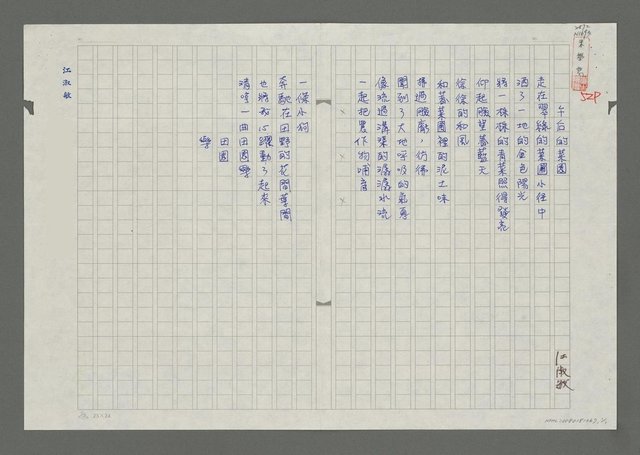 午后的菜園
走在翠綠的菜園小徑中
洒了一地的金色陽光
將一株株的青菜照得發亮
仰起頭望著藍天
徐徐的和風
和著菜園裡的泥土味
掠過臉龐，彷彿
聞到了大地呼吸的氣息
像流過溝渠的潺潺水流
一起把農作物哺育
一條小河
奔馳在田野的花間葉間
也將我心躍動了起來
清唱一曲田園
田園
江淑敏
江淑敏
52P
25×24